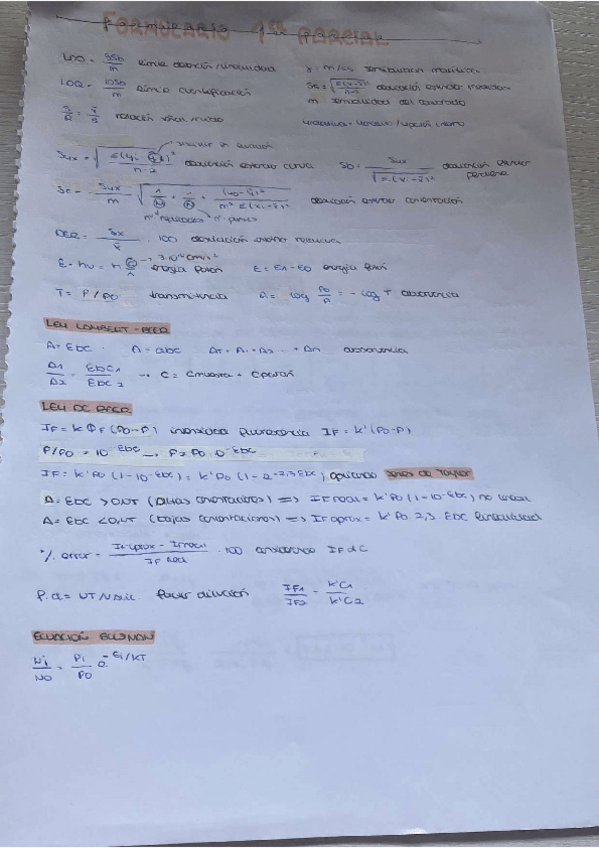 FORMULARIO 1er PARCIAL
LOD = 3Sb/m límite detección/linealidad γ = m/Ss sensibilidad analítica
LOQ = 10Sb/m límite cuantificación Ss = desviación estándar
m sensibilidad del calibrado
S/R = x̄/s relación señal/ruido
Sy/x = √(Σ(yi-ŷi)²/n-2) desviación estándar curva Sb = Sy/x / √(Σ(xi-x̄)²) desviación estándar pendiente
Sc = Sy/x / m √(1/M + 1/n + (y0-ȳ)²/m² Σ(xi-x̄)²) desviación estándar concentración
DER = Sx/x̄ · 100 desviación estándar relativa
E = hν = h c/λ → 3·10¹⁰ cm/s energía fotón E = E1-E0 energía fotón
T = P/P0 transmitancia A = log P0/P = -log T absorbancia
LEY LAMBERT-BEER
A = Ebc A = abc AT = A1+A2...+An absorbancia
A1/A2 = Ebc1/Ebc2 → C = Cmuestra + Cpatrón
LEY DE BEER
IF = k ΦF (P0-P) intensidad fluorescencia IF = k' (P0-P)
P/P0 = 10^-Ebc → P = P0·10^-Ebc
IF = k'P0 (1-10^-Ebc) = k'P0 (1-e^-2,3Ebc) aplicando series de Taylor
A = Ebc > 0,05 (altas concentraciones) => IF real = k'P0 (1-10^-Ebc) no lineal
A = Ebc < 0,05 (bajas concentraciones) => IF aprox = k'P0 2,3 Ebc linealidad
% error = IF aprox - IF real / IF real · 100 considerando IF dC
F.d = VT/Valic factor dilución IF1/IF2 = k'C1/k'C2
ECUACIÓN BOLTZMANN
Ni/N0 = Pi/P0 e^-Ei/KT